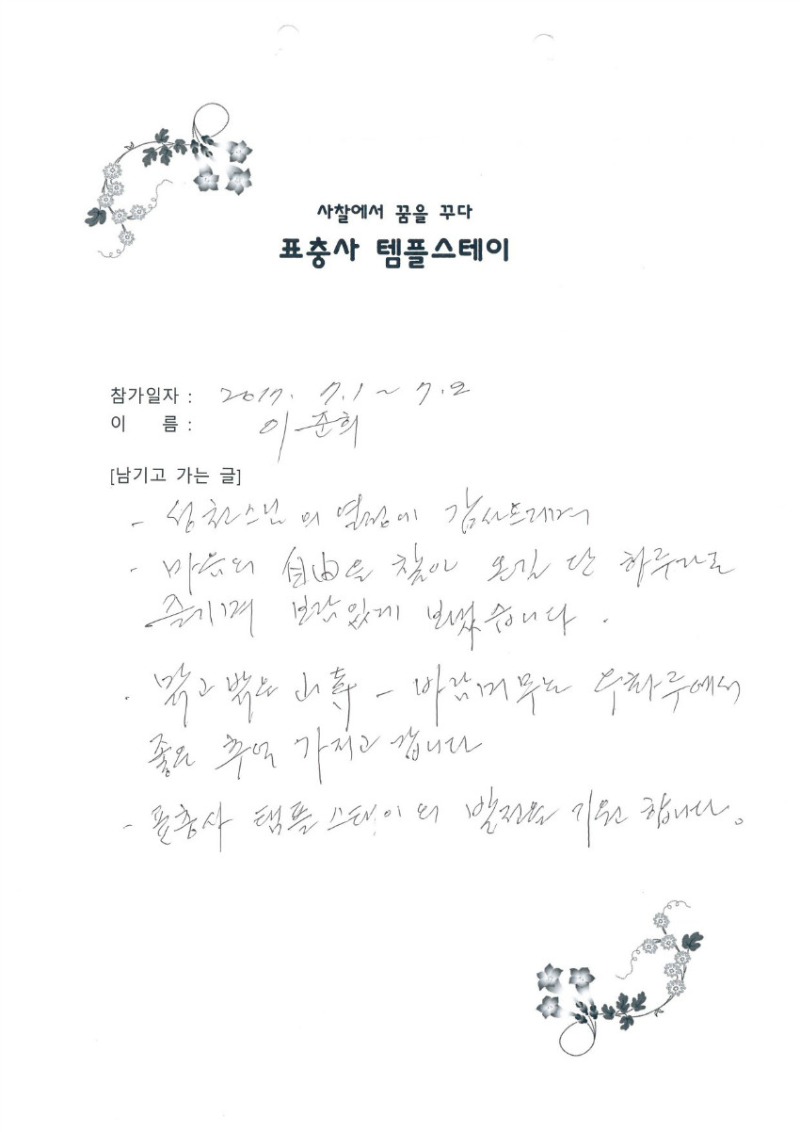 사찰에서 꿈을 꾸다
표충사 템플스테이
참가일자 : 2017. 7.1 ~ 7.2
이 름 : 이준희
[남기고 가는 글]
- 스님의 열정에 감사드리며
- 마음의 自由을 찾아 온길 단 하루라도
즐기며 보람있게 보냈습니다.
. 맑고 밝은 山寺 - 바람머무는 우화루에서
좋은 추억 가지고 갑니다
- 표충사 템플스테이의 발전을 기원합니다。